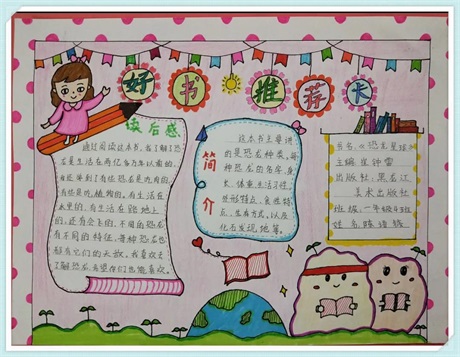 好书推荐卡
读后感
通过阅读这本书,我了解了恐
龙是生活在两亿多万年以前的,
有的是吃植物的。有生活在
水里的,有生活在陆地上
的,还有会飞的,不同的恐龙
有不同的特征,每种恐龙也
都有它们的天敌。我喜欢去
了解恐龙,希望你们也能喜欢。
简介
这本书主要讲
的是恐龙种类,每
种恐龙的名字,身
长,体重,生活习性,
外形特点,食性特
点,生存方式,以及
化石发现地等。
书名:《恐龙星球》
主编:崔钟雷
出版社:黑龙江
美术出版社
班级:一年级4班
姓名:陈